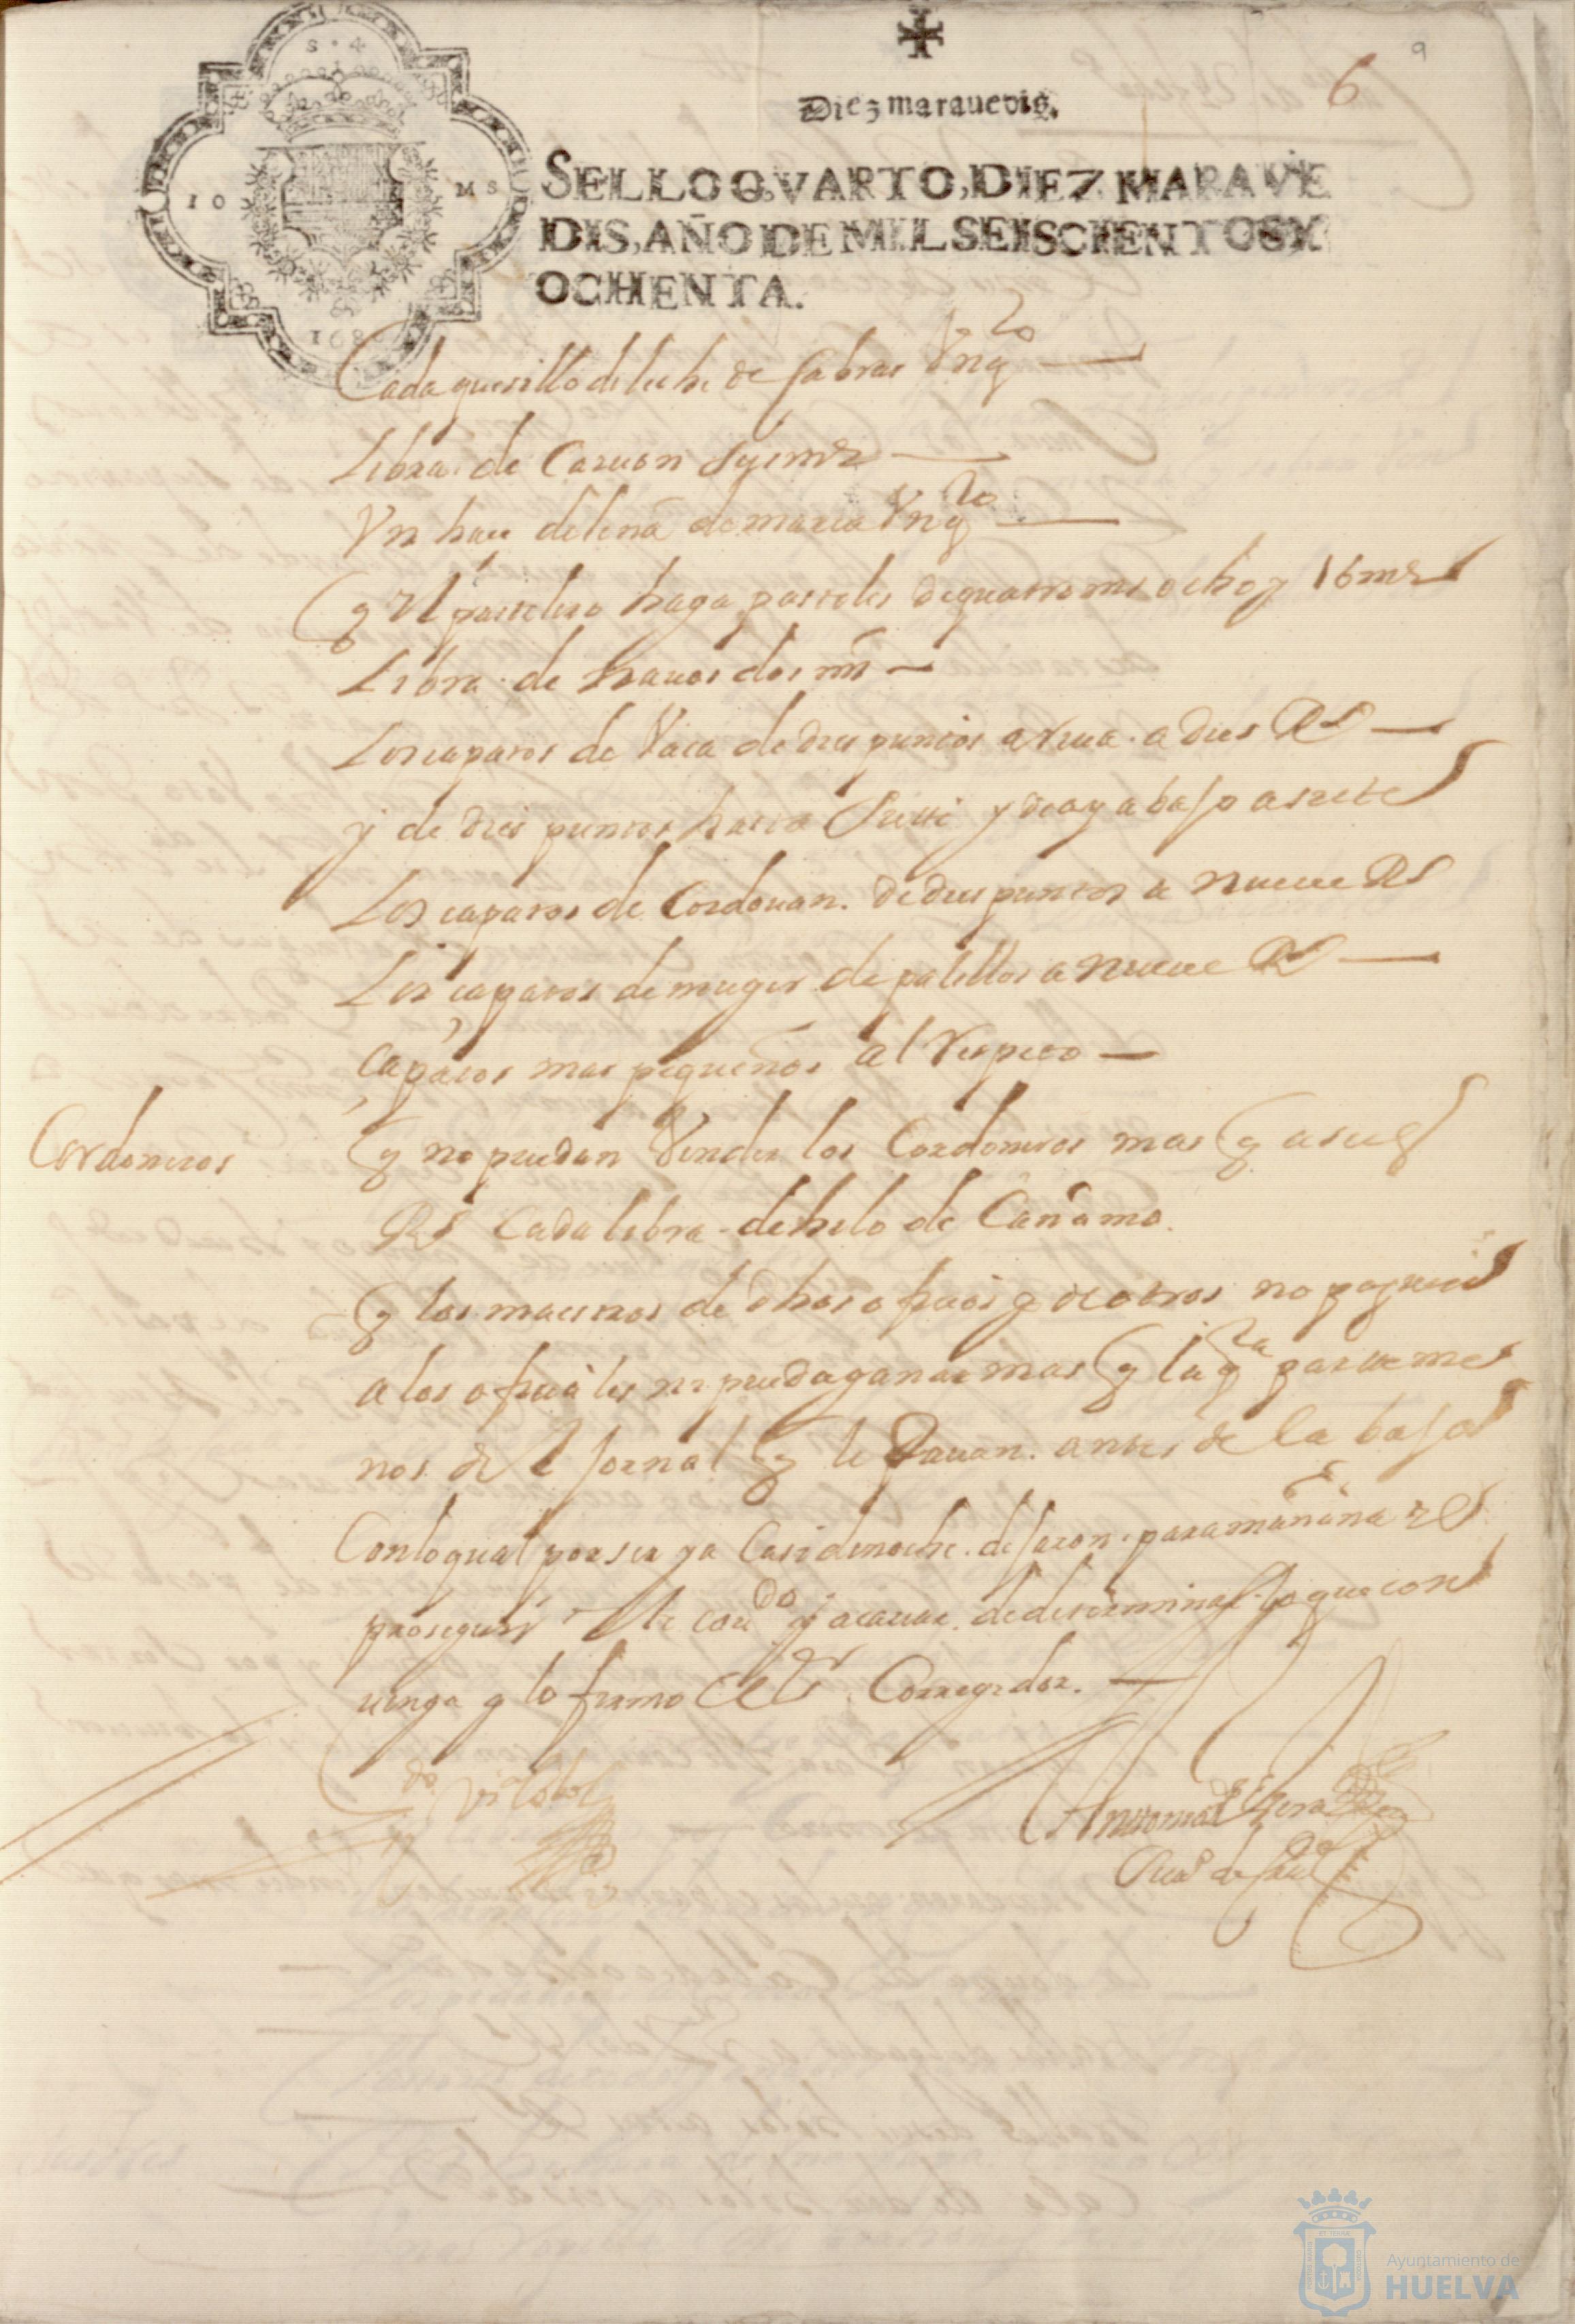 9
6
Diez marauedis.
S·4
10 MS
168
SELLO QVARTO, DIEZ MARAVE
DIS, AÑO DE MIL SEISCIENTOS Y
OCHENTA.
Cada quesillo de leche de Cabras Vn qto
Libra de Caruon
Vn has de leña de Vn qto
q el pastelero haga pasteles de quatro ms ocho y 16 mrs
Libra de hauos dos ms
Los çapatos de Vaca de dies puntos arriua a dies Rs
y de dies puntos hasta y de ay abajo a siete
Los çapatos de Cordouan de dies puntos a nueue Rs
Los çapatos de muger de palillos a nueue Rs
çapatos mas pequeños al respeto
Cordoneros
q no puedan Vender los Cordoneros mas q a seis
Rs Cada libra de hilo de Cañamo.
q los maestros de dhos ofiçios y de otros no paguen
a los ofiçiales ni pueda ganar mas q la qta parte me
nos del Jornal q le dauan antes de la baja
Con lo qual por ser ya Casi de noche dejaron para mañana el
proseguir este caudo y acauar de determinar lo que con
uenga y lo firmo el Sr Corregidor.
Antonio de